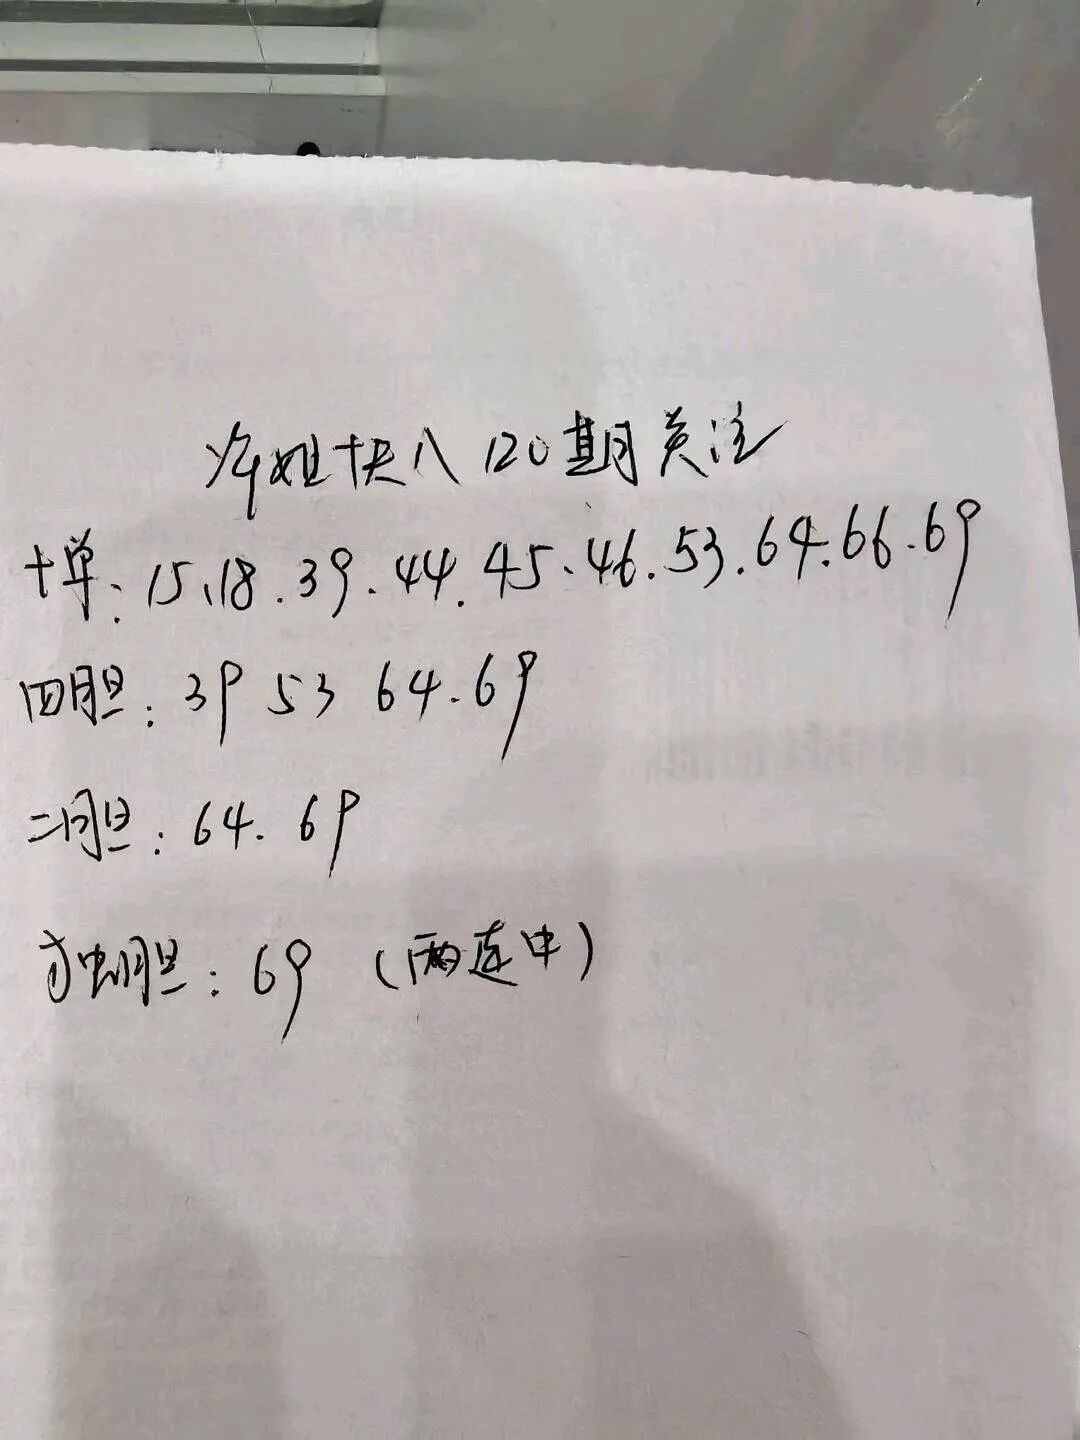 姐快八120期关注
十单：15、18.39.44.45、46.53.64.66.69
四胆：39 53 64.69
二胆：64.69
独胆：69（两连中）